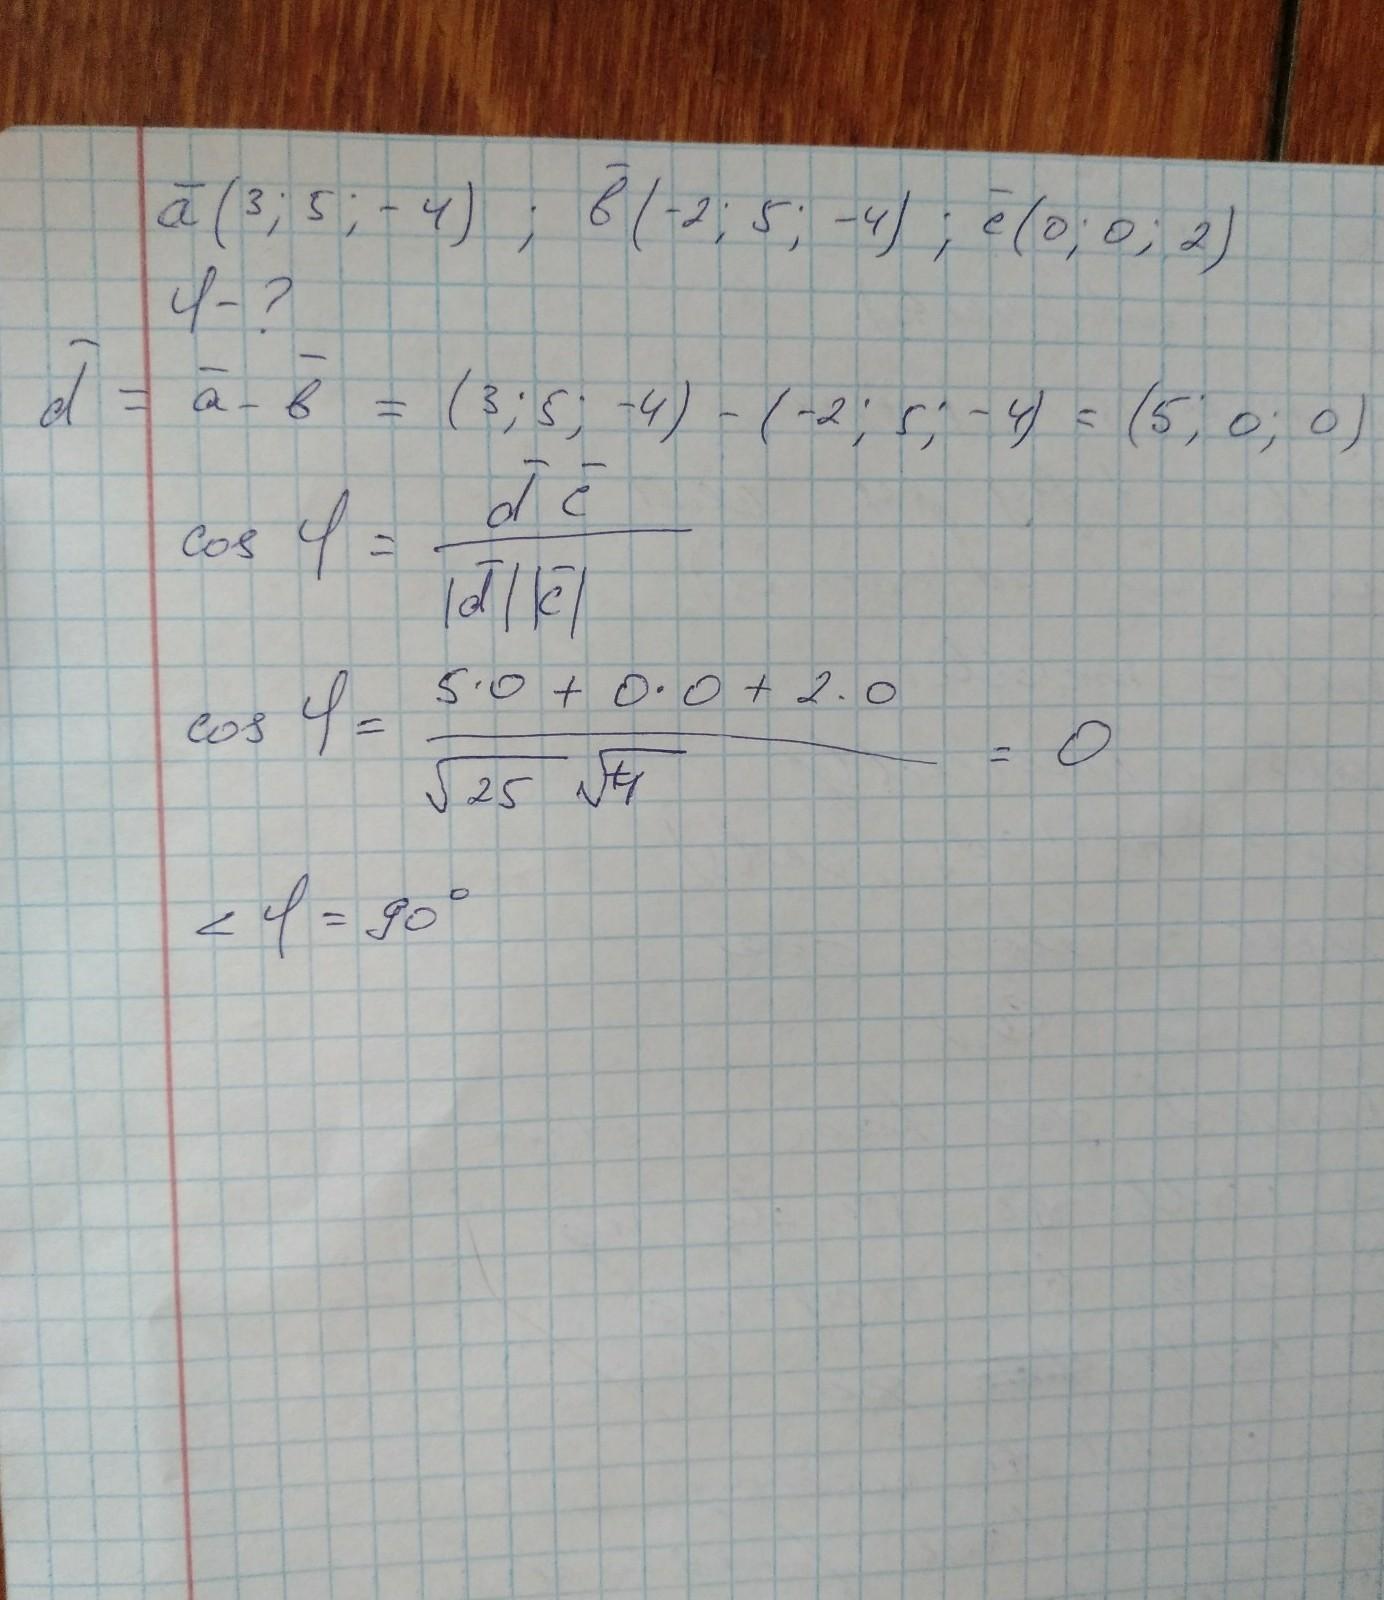 a̅ (3; 5; -4) ; b̅ (-2; 5; -4) ; c̅ (0; 0; 2)
φ - ?
d̅ = a̅ - b̅ = (3; 5; -4) - (-2; 5; -4) = (5; 0; 0)
cos φ = d̅ c̅ / |d̅| |c̅|
cos φ = 5·0 + 0·0 + 2·0 / √25 √4 = 0
< φ = 90°